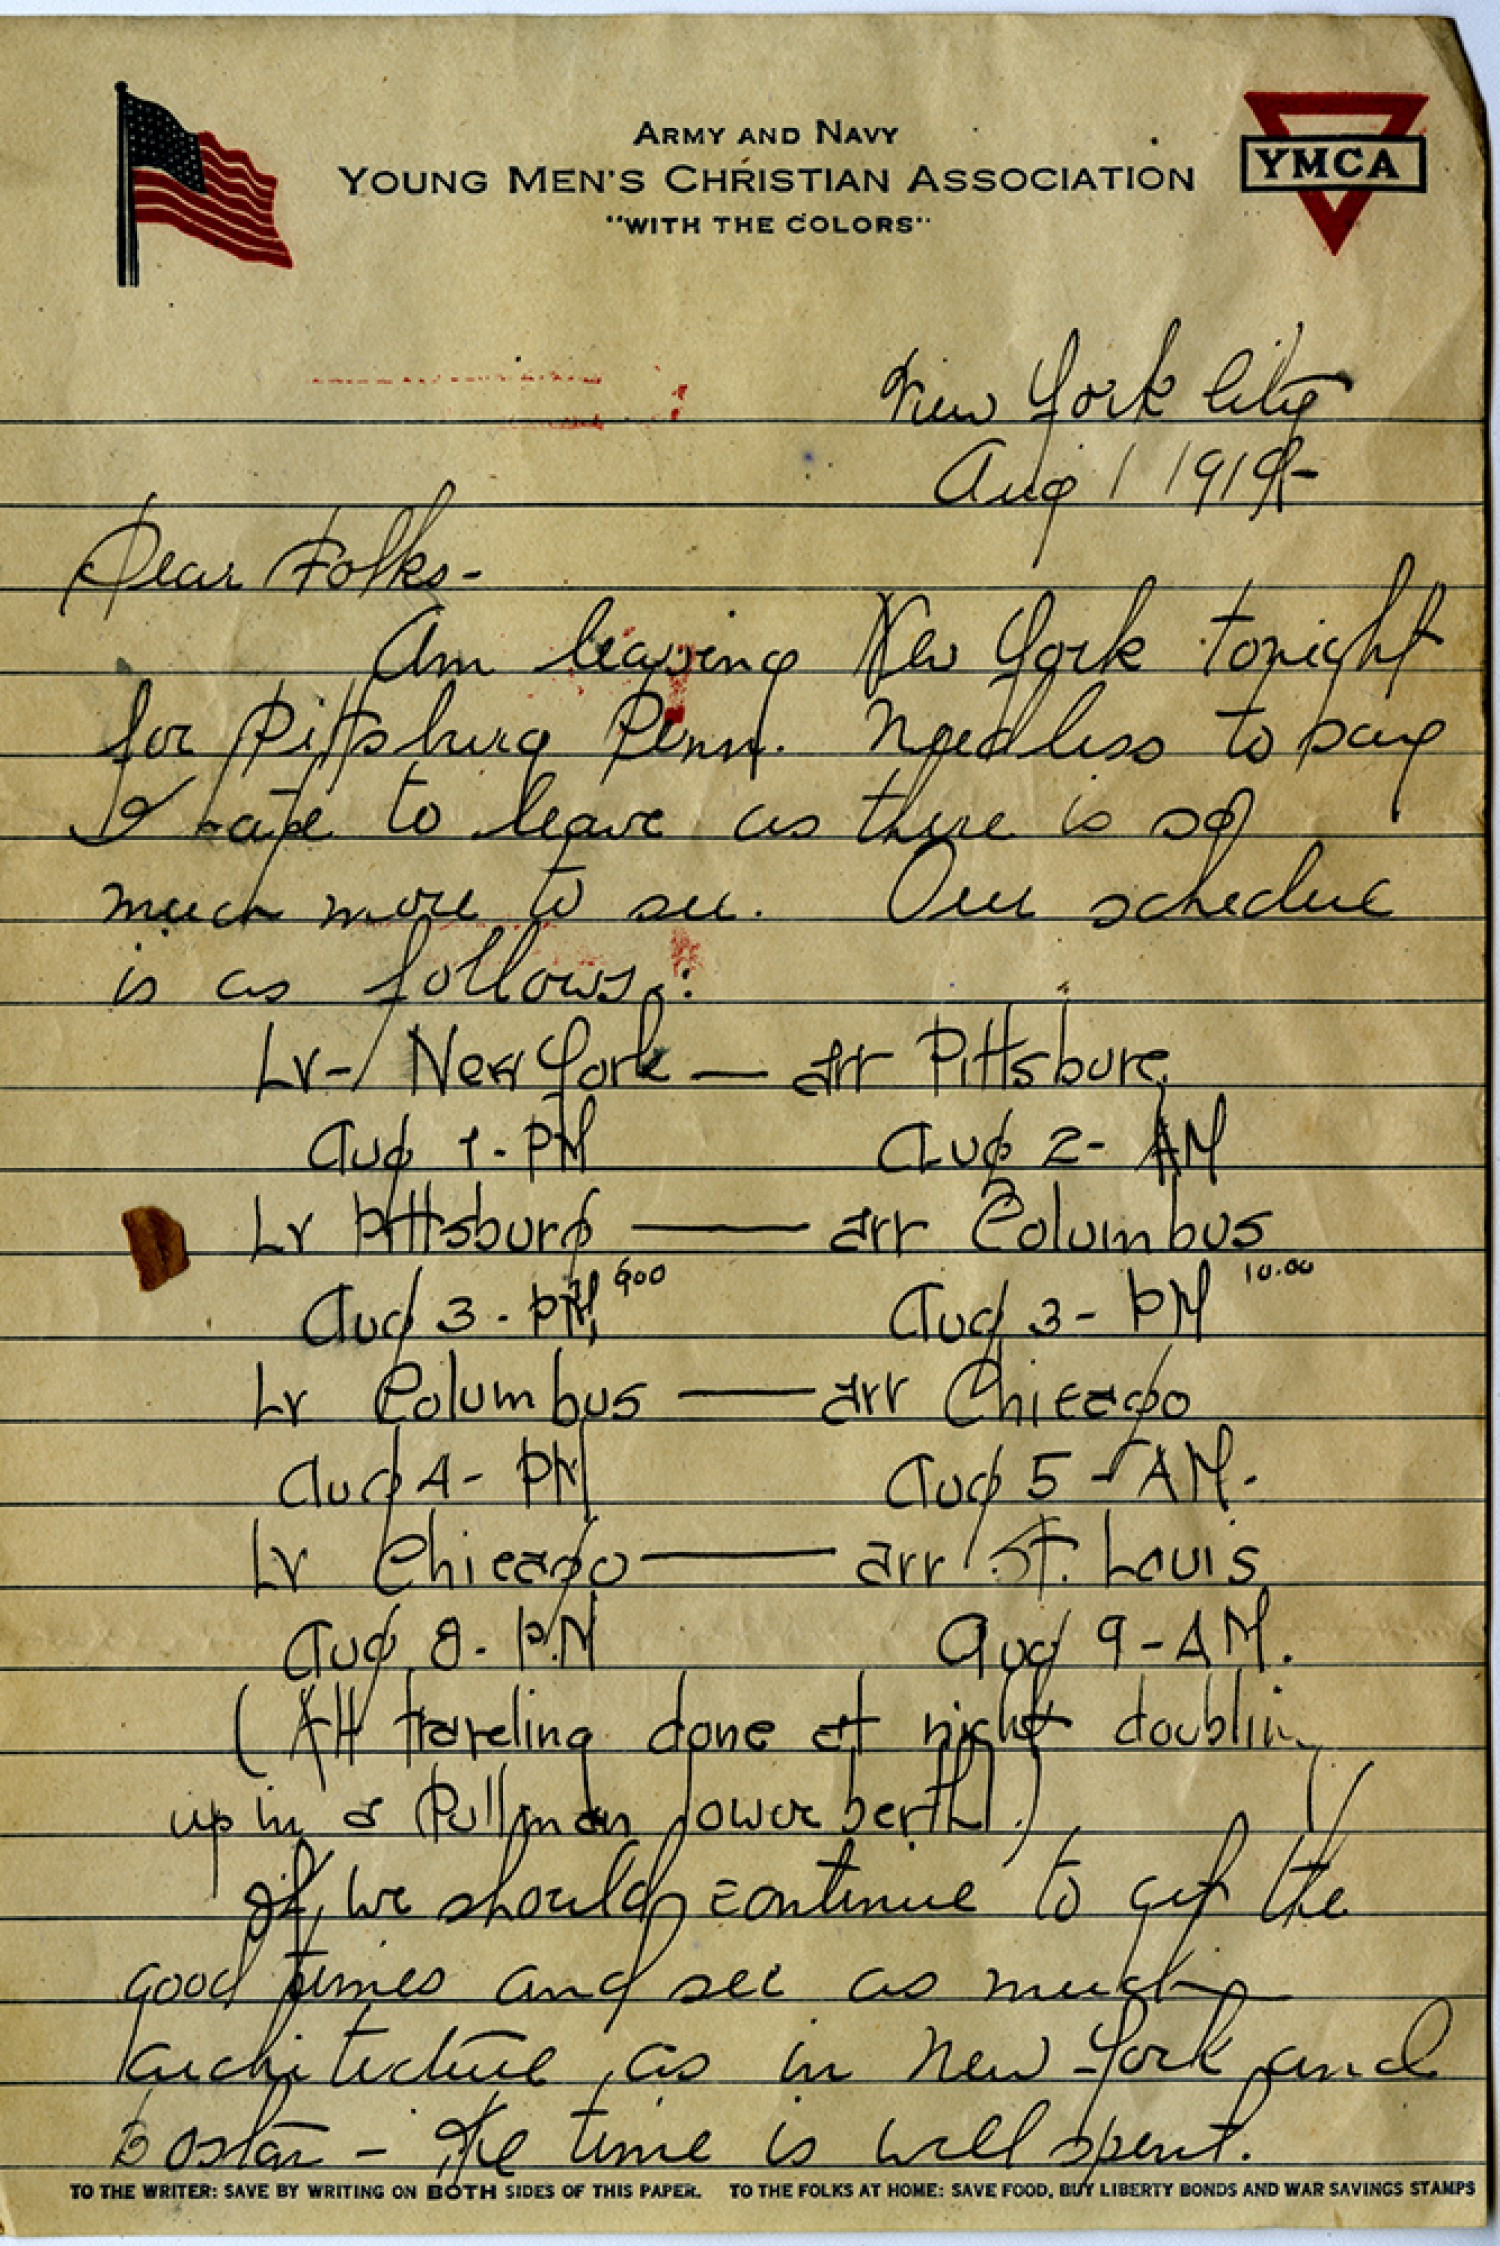 ARMY AND NAVY
YOUNG MEN'S CHRISTIAN ASSOCIATION
"WITH THE COLORS"
YMCA
New York City
Aug 1 1919-
Dear Folks-
Am leaving New York tonight
for Pittsburg Penn. Needless to say
I hate to leave as there is so
much more to see. Our schedule
is as follows:
Lv- New York — arr Pittsburg
Aug 1- PM Aug 2- AM
Lv Pittsburg — arr Columbus
Aug 3- PM 600 Aug 3- PM 10.00
Lv Columbus — arr Chicago
Aug 4- PM Aug 5-AM.
Lv Chicago — arr St. Louis
Aug 8- P.M Aug 9-AM.
(All traveling done at night doubling
up in a Pullman lower berth.)
If we should continue to get the
good times and see as much
architecture as in New York and
Boston - the time is well spent.
TO THE WRITER: SAVE BY WRITING ON BOTH SIDES OF THIS PAPER. TO THE FOLKS AT HOME: SAVE FOOD, BUY LIBERTY BONDS AND WAR SAVINGS STAMPS